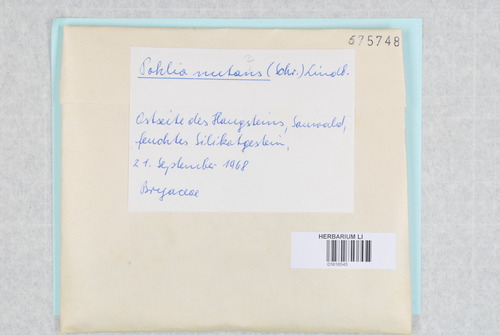 575748
Pohlia nutans (Schr.) Lindb.
Ostseite des Haugsteins, Sauwald,
feuchtes Silikatgestein,
21. September 1968
Bryaceae
HERBARIUM LI